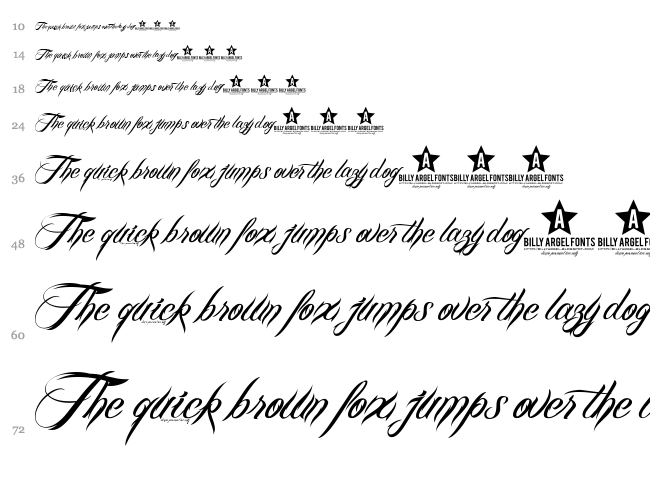 10 The quick brown fox jumps over the lazy dog
14 The quick brown fox jumps over the lazy dog
18 The quick brown fox jumps over the lazy dog
24 The quick brown fox jumps over the lazy dog A A A
BILLY ARGEL FONTS BILLY ARGEL FONTS BILLY ARGEL FONTS
36 The quick brown fox jumps over the lazy dog A A A
BILLY ARGEL FONTS BILLY ARGEL FONTS BILLY ARGEL FONTS
48 The quick brown fox jumps over the lazy dog A A
BILLY ARGEL FONTS BILLY ARGEL F
60 The quick brown fox jumps over the lazy dog
72 The quick brown fox jumps over the l